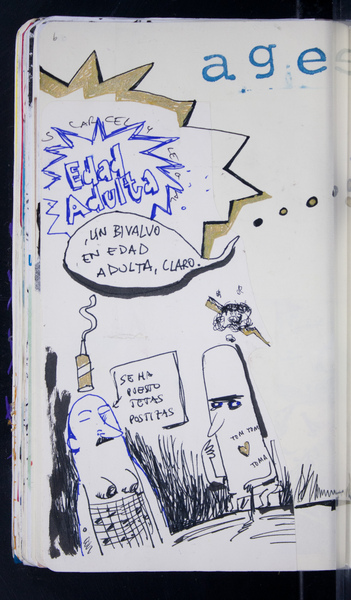 6
ages
CARCEL Y
Edad
Adulta
¡UN BIVALVO
EN EDAD
ADULTA, CLARO.
SE HA
PUESTO
TETAS
POSTIZAS
TOM TOM
TOMA